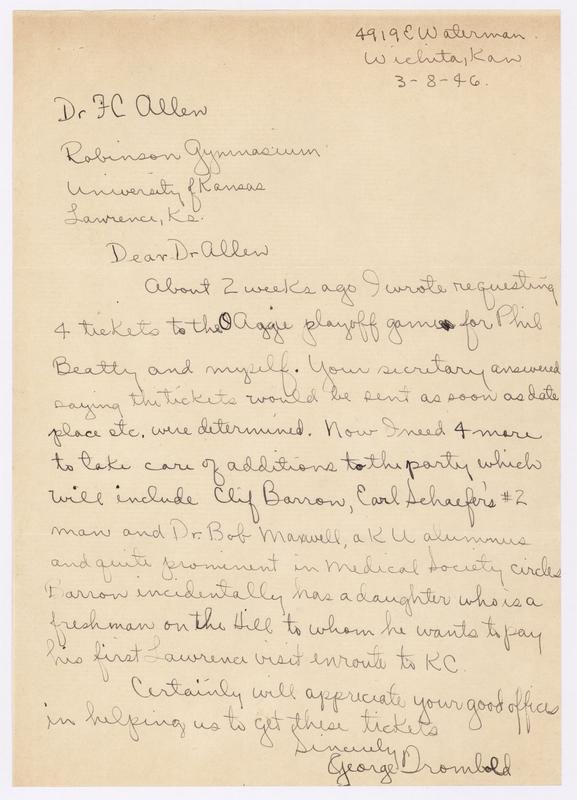 4919 E Waterman
Wichita, Kan
3-8-46.
Dr FC Allen
Robinson Gymnasium
University of Kansas
Lawrence, Ks.
Dear Dr Allen
About 2 weeks ago I wrote requesting
4 tickets to the O Aggie playoff game for Phil
Beatty and myself. Your secretary answered
saying the tickets would be sent as soon as date
place etc. were determined. Now I need 4 more
to take care of additions to the party which
will include Clif Barron, Earl Schaefer's #2
man and Dr. Bob Maxwell, a K U alumnus
and quite prominent in Medical Society circles
Barron incidentally has a daughter who is a
freshman on the Hill to whom he wants to pay
his first Lawrence visit enroute to KC.
Certainly will appreciate your good offices
in helping us to get these tickets
Sincerely
George Drombold